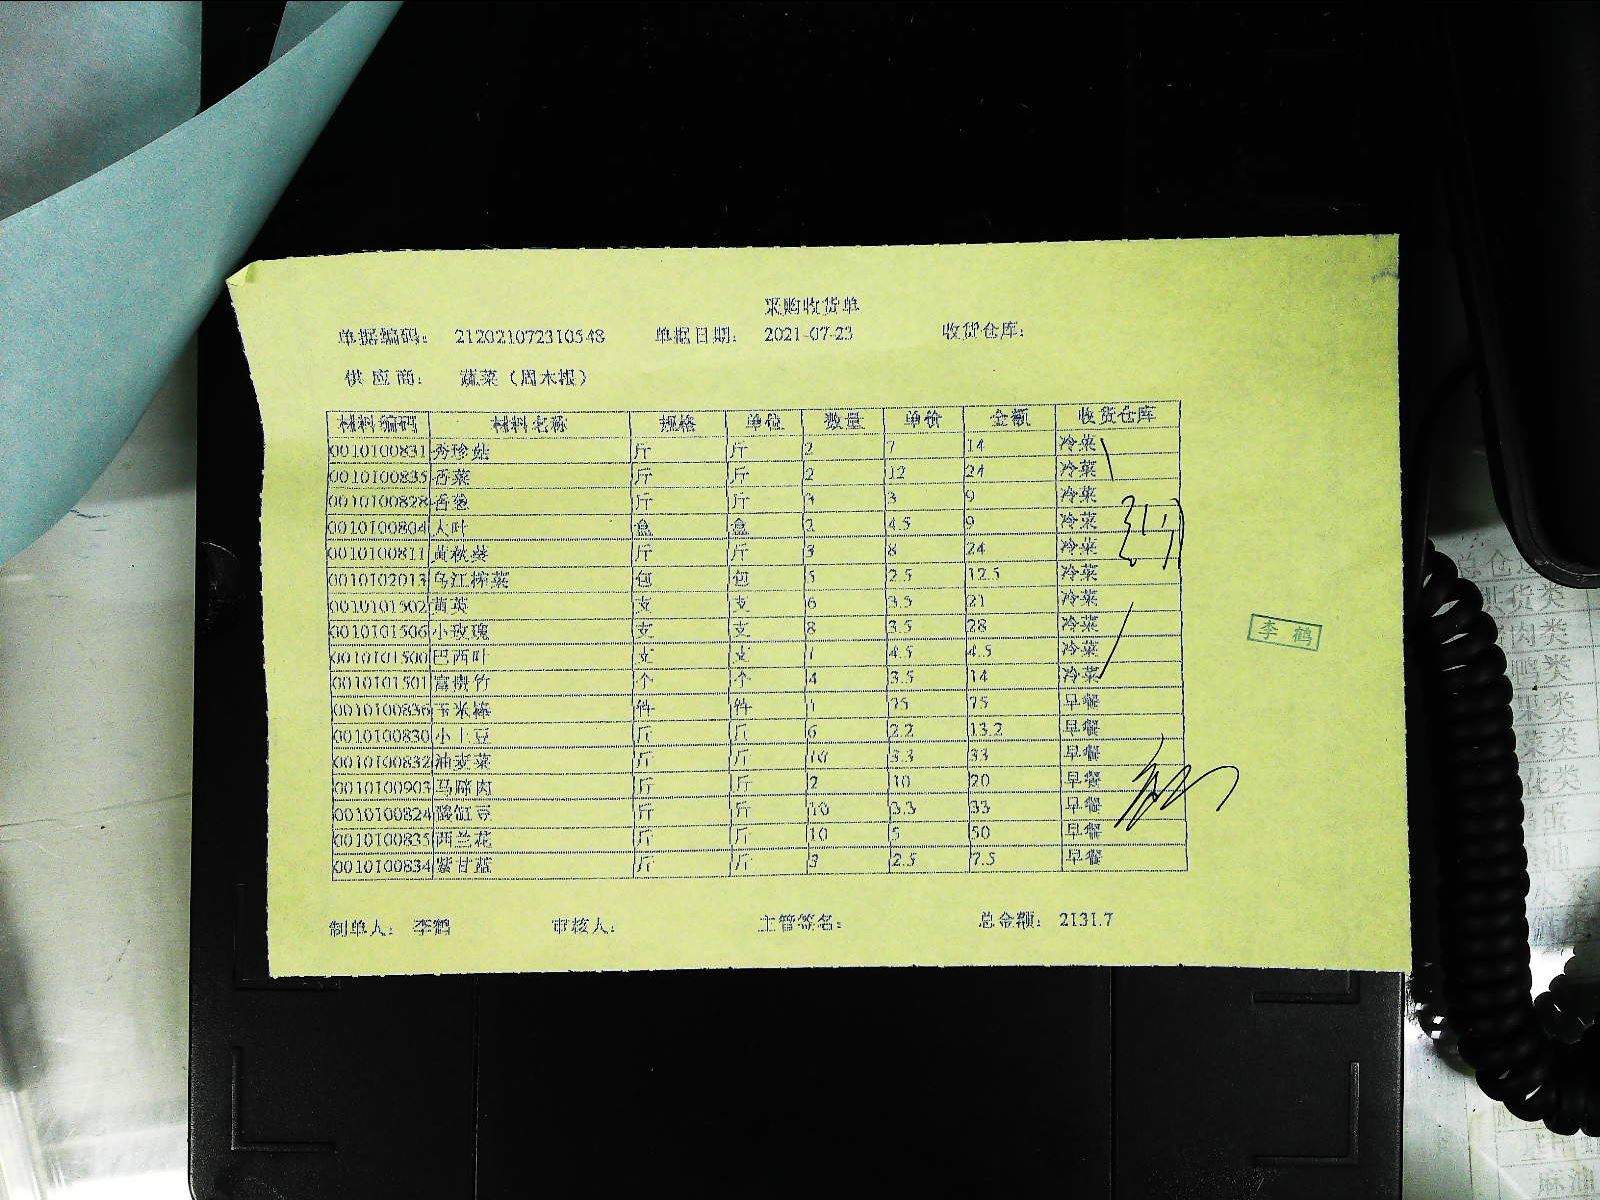 采购收货单
单据编码: 212021072310548 单据日期: 2021-07-23 收货仓库:
供应商: 蔬菜（周木根）
材料编码 材料名称 规格 单位 数量 单价 金额 收货仓库
0010100831 秀珍菇 斤 斤 2 7 14 冷菜
0010100835 香菜 斤 斤 2 12 24 冷菜
0010100828 香葱 斤 斤 3 3 9 冷菜
0010100804 大叶 盒 盒 2 4.5 9 冷菜
0010100811 黄秋葵 斤 斤 3 8 24 冷菜
0010102013 乌江榨菜 包 包 5 2.5 12.5 冷菜
0010101502 黄英 支 支 6 3.5 21 冷菜
0010101506 小玫瑰 支 支 8 3.5 28 冷菜
0010101500 巴西叶 支 支 1 4.5 4.5 冷菜
0010101501 富贵竹 个 个 4 3.5 14 冷菜
0010100836 玉米棒 件 件 1 75 75 早餐
0010100830 小土豆 斤 斤 6 2.2 13.2 早餐
0010100832 油麦菜 斤 斤 10 3.3 33 早餐
0010100903 马蹄肉 斤 斤 2 10 20 早餐
0010100824 酸豇豆 斤 斤 10 3.3 33 早餐
0010100835 西兰花 斤 斤 10 5 50 早餐
0010100834 紫甘蓝 斤 斤 3 2.5 7.5 早餐
制单人: 李鹤 审核人: 主管签名: 总金额: 2131.7
李鹤